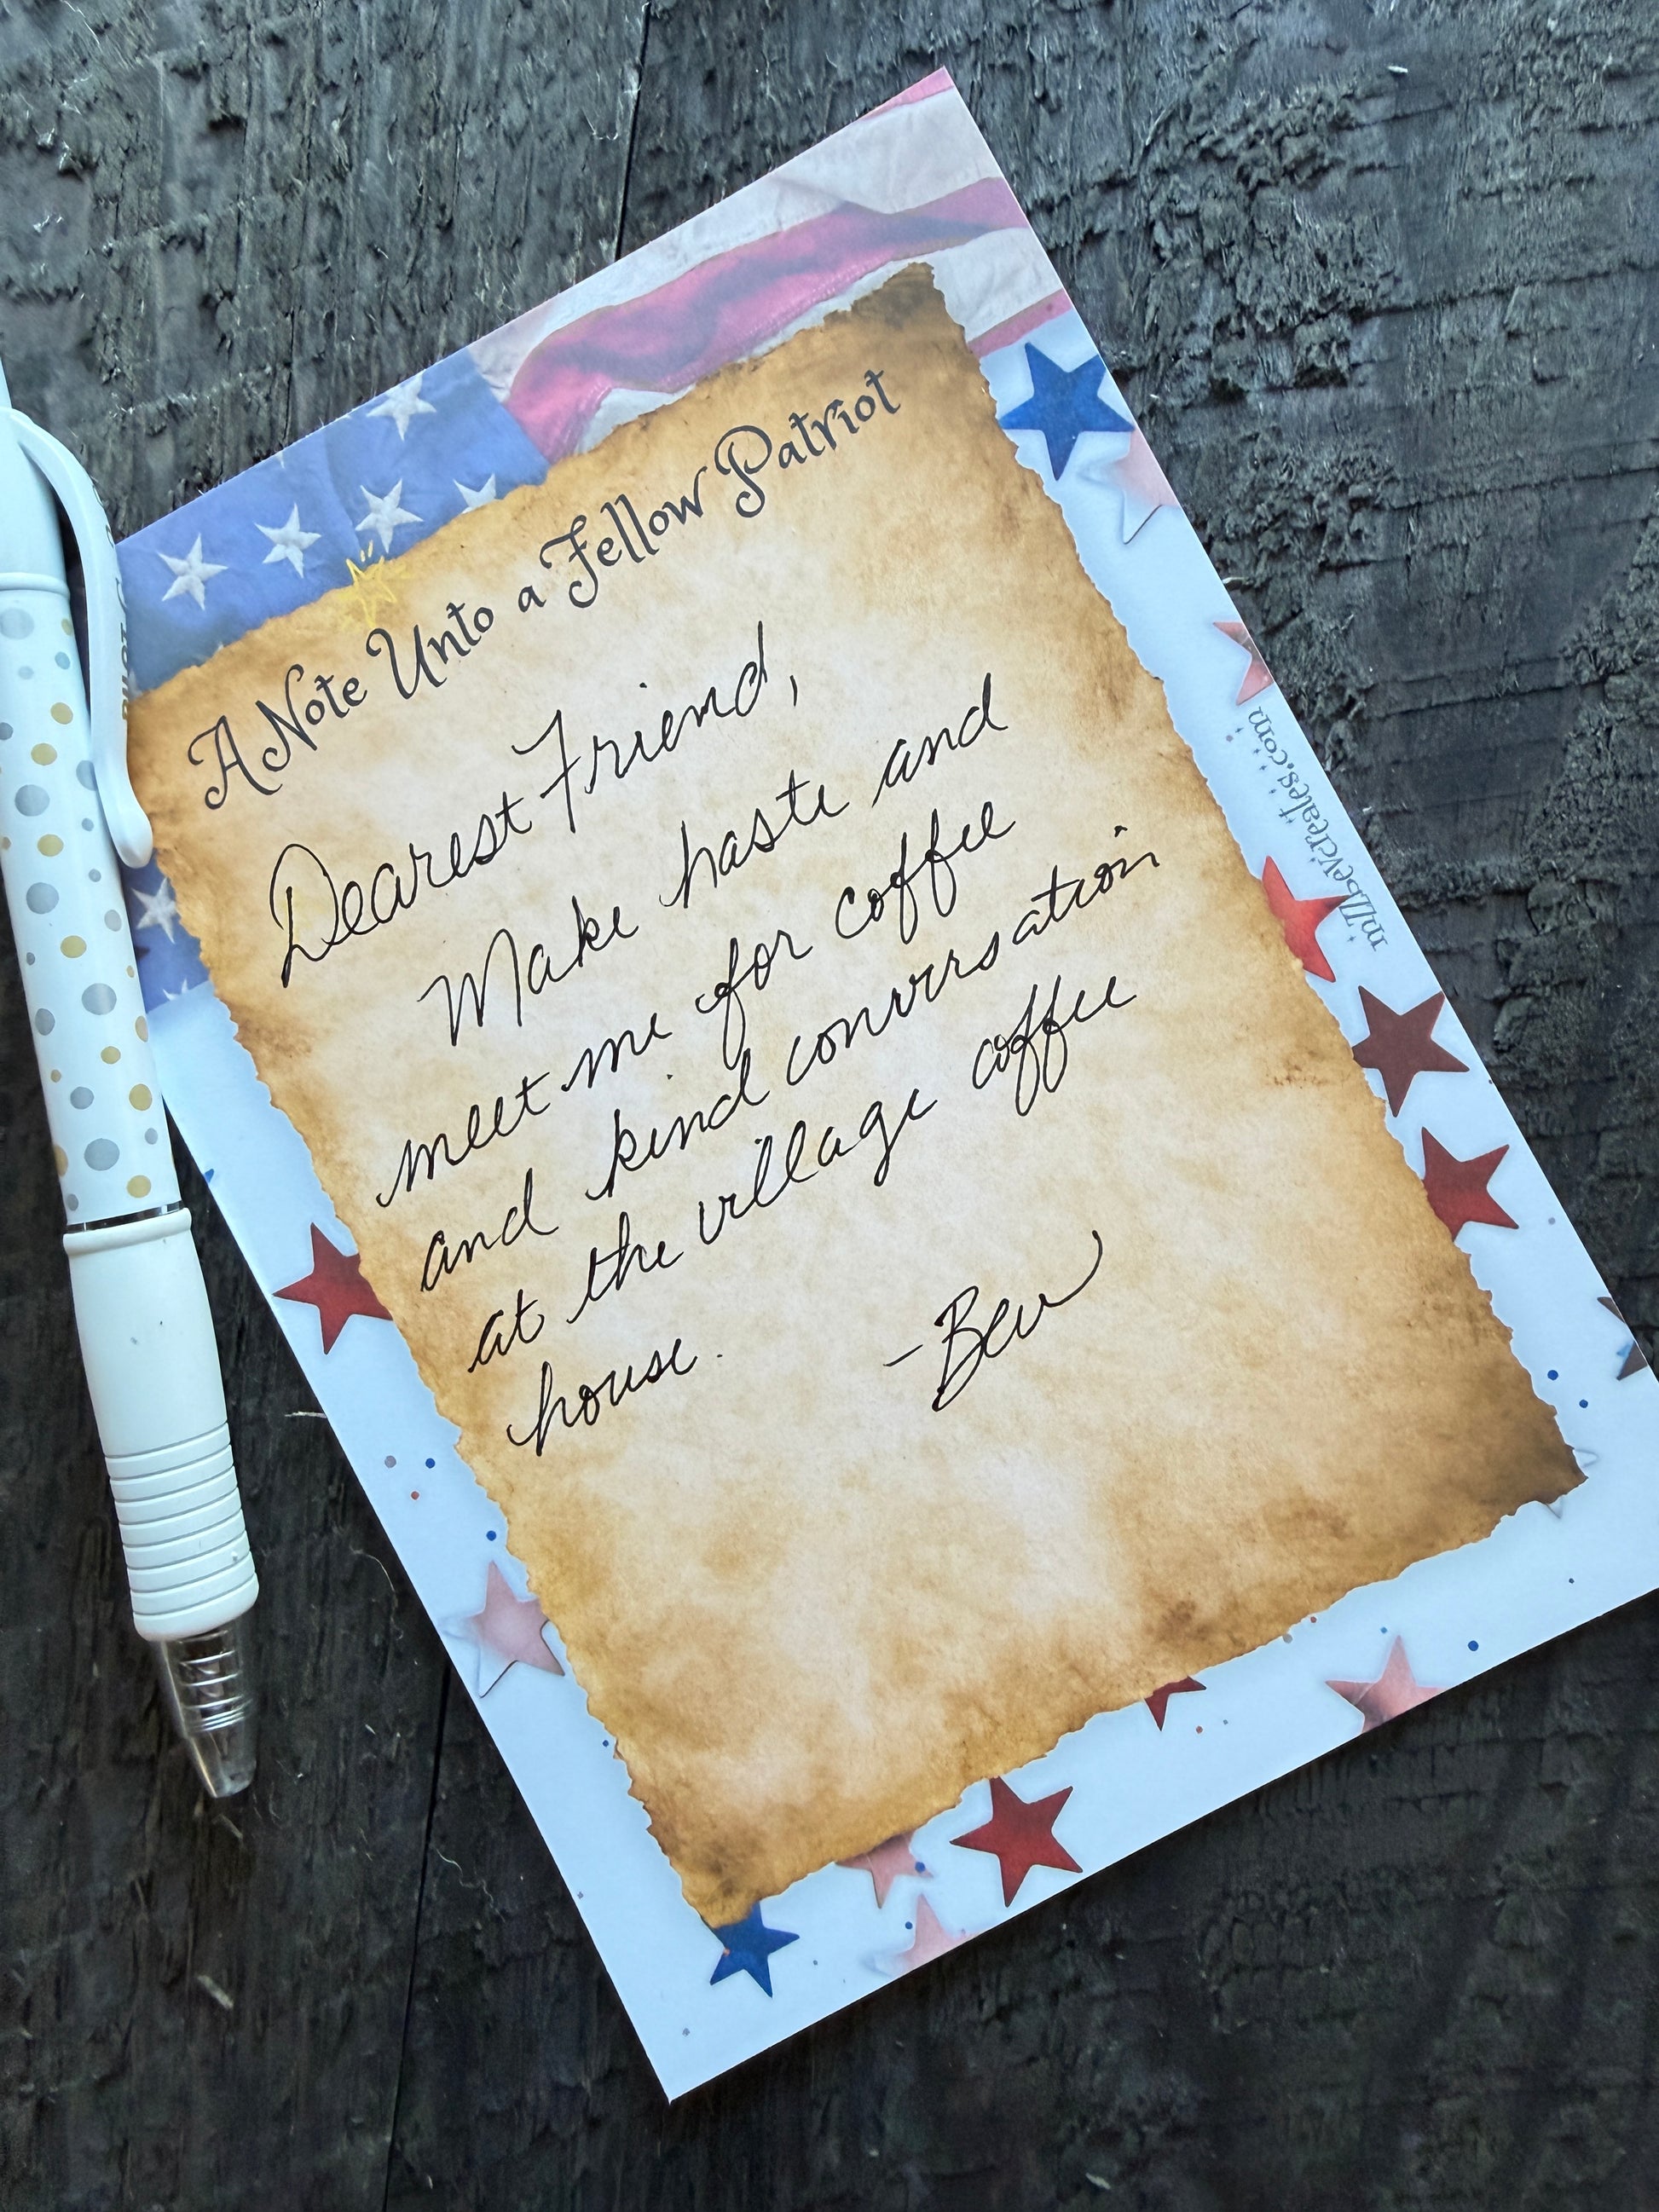 A Note Unto a Fellow Patriot
Dearest Friend,
Make haste and
meet me for coffee
and kind conversation
at the village coffee
house.
-Bev
millbevcreates.com